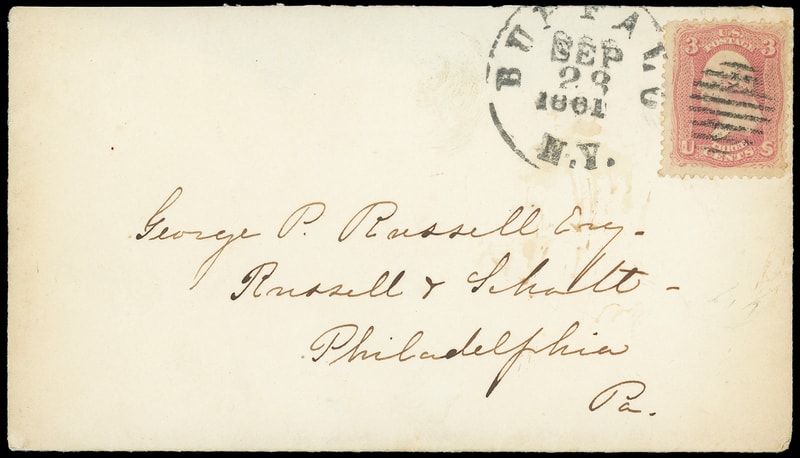 BUFFALO
SEP
28
1861
N.Y.
3 U.S. 3
POSTAGE
U THREE S
CENTS
George P. Russell Esq.
Russell & Schott
Philadelphia
Pa.